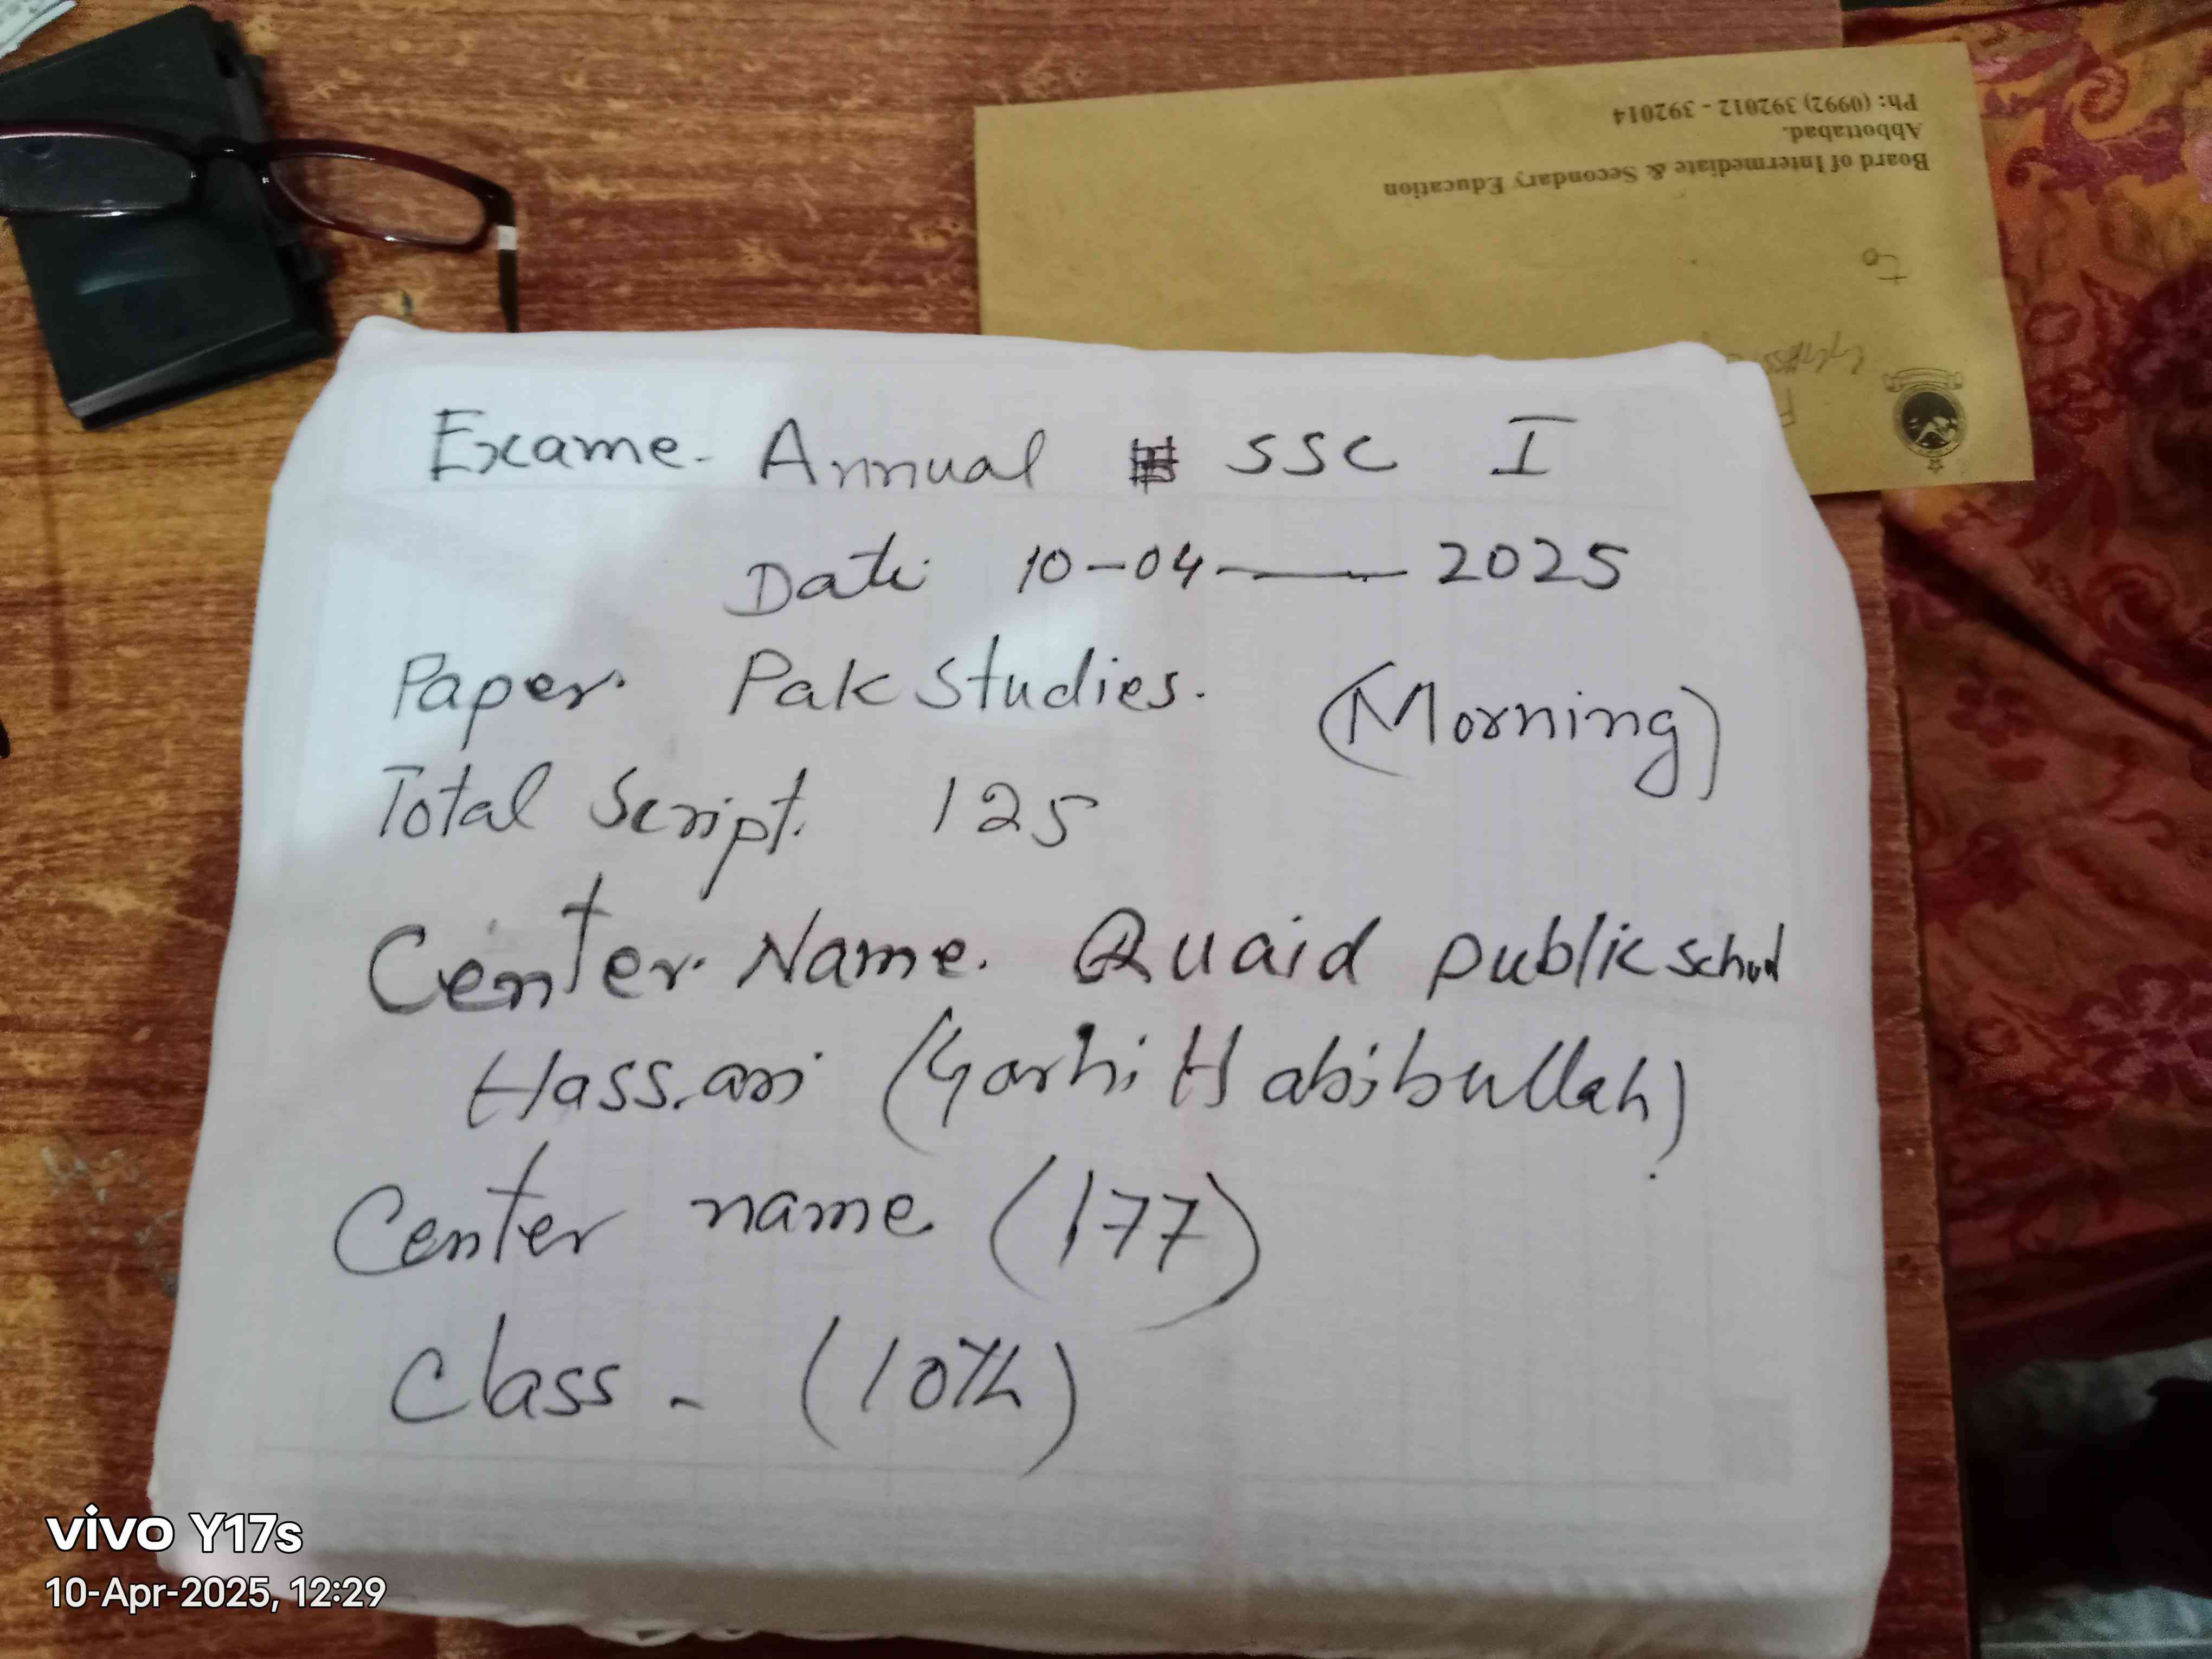 Board of Intermediate & Secondary Education
Abbottabad.
Ph: (0992) 392012 - 392014
to
Exame. Annual SSC I
Date: 10-04-2025
Paper. Pak Studies. (Morning)
Total Script. 125
Center. Name. Quaid public school
Hassari (Garhi Habibullah)
Center name (177)
Class - (10th)
vivo Y17s
10-Apr-2025, 12:29